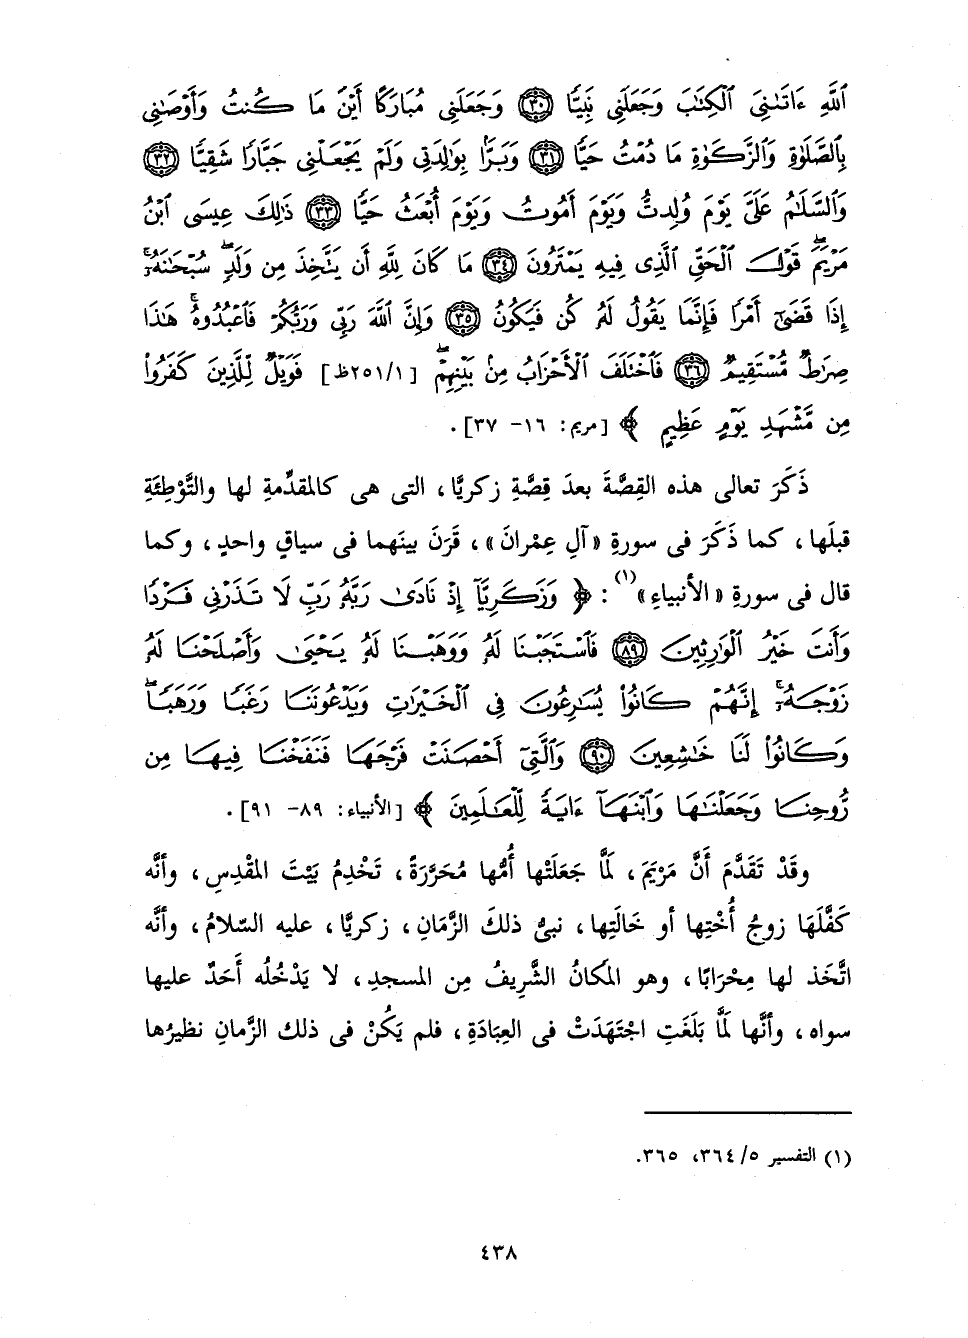 ٱللَّهِ ءَاتَىٰنِىَ ٱلْكِتَٰبَ وَجَعَلَنِى نَبِيًّا ﴿٣٠﴾ وَجَعَلَنِى مُبَارَكًا أَيْنَ مَا كُنتُ وَأَوْصَٰنِى
بِٱلصَّلَوٰةِ وَٱلزَّكَوٰةِ مَا دُمْتُ حَيًّا ﴿٣١﴾ وَبَرًّۢا بِوَٰلِدَتِى وَلَمْ يَجْعَلْنِى جَبَّارًا شَقِيًّا ﴿٣٢﴾
وَٱلسَّلَٰمُ عَلَىَّ يَوْمَ وُلِدتُّ وَيَوْمَ أَمُوتُ وَيَوْمَ أُبْعَثُ حَيًّا ﴿٣٣﴾ ذَٰلِكَ عِيسَى ٱبْنُ
مَرْيَمَ ۖ قَوْلَ ٱلْحَقِّ ٱلَّذِى فِيهِ يَمْتَرُونَ ﴿٣٤﴾ مَا كَانَ لِلَّهِ أَن يَتَّخِذَ مِن وَلَدٍ ۖ سُبْحَٰنَهُۥٓ ۚ
إِذَا قَضَىٰٓ أَمْرًا فَإِنَّمَا يَقُولُ لَهُۥ كُن فَيَكُونُ ﴿٣٥﴾ وَإِنَّ ٱللَّهَ رَبِّى وَرَبُّكُمْ فَٱعْبُدُوهُ ۚ هَٰذَا
صِرَٰطٌ مُّسْتَقِيمٌ ﴿٣٦﴾ فَٱخْتَلَفَ ٱلْأَحْزَابُ مِنۢ بَيْنِهِمْ ۖ [٢٥١/١ظ] فَوَيْلٌ لِّلَّذِينَ كَفَرُوا۟
مِن مَّشْهَدِ يَوْمٍ عَظِيمٍ ﴾ [مريم: ١٦- ٣٧].
ذَكَرَ تعالى هذه القِصَّةَ بعدَ قِصَّةِ زكريَّا، التى هى كالمقدِّمةِ لها والتَّوْطِئَةِ
قبلَها، كما ذَكَرَ فى سورةِ «آلِ عِمْرانَ»، قَرَنَ بينَهما فى سياقٍ واحدٍ، وكما
قال فى سورةِ «الأنبياءِ»(١): ﴿ وَزَكَرِيَّآ إِذْ نَادَىٰ رَبَّهُۥ رَبِّ لَا تَذَرْنِى فَرْدًا
وَأَنتَ خَيْرُ ٱلْوَٰرِثِينَ ﴿٨٩﴾ فَٱسْتَجَبْنَا لَهُۥ وَوَهَبْنَا لَهُۥ يَحْيَىٰ وَأَصْلَحْنَا لَهُۥ
زَوْجَهُۥٓ ۚ إِنَّهُمْ كَانُوا۟ يُسَٰرِعُونَ فِى ٱلْخَيْرَٰتِ وَيَدْعُونَنَا رَغَبًا وَرَهَبًا ۖ
وَكَانُوا۟ لَنَا خَٰشِعِينَ ﴿٩٠﴾ وَٱلَّتِىٓ أَحْصَنَتْ فَرْجَهَا فَنَفَخْنَا فِيهَا مِن
رُّوحِنَا وَجَعَلْنَٰهَا وَٱبْنَهَآ ءَايَةً لِّلْعَٰلَمِينَ ﴾ [الأنبياء: ٨٩- ٩١].
وقَدْ تَقَدَّمَ أَنَّ مَرْيَمَ، لَمَّا جَعَلَتْها أُمُّها مُحَرَّرَةً، تَخْدِمُ بَيْتَ المَقْدِسِ، وأنَّه
كَفَّلَهَا زوجُ أُخْتِها أو خَالَتِها، نبىُّ ذلكَ الزَّمَانِ، زكريَّا، عليه السّلامُ، وأنَّه
اتَّخَذ لها مِحْرَابًا، وهو المَكانُ الشَّرِيفُ مِن المسجدِ، لا يَدْخُلُه أَحَدٌ عليها
سواه، وأنَّها لَمَّا بَلَغَتِ اجْتَهَدَتْ فى العِبَادَةِ، فلم يَكُنْ فى ذلك الزَّمانِ نظيرُها
(١) التفسير ٣٦٤/٥، ٣٦٥.
٤٣٨